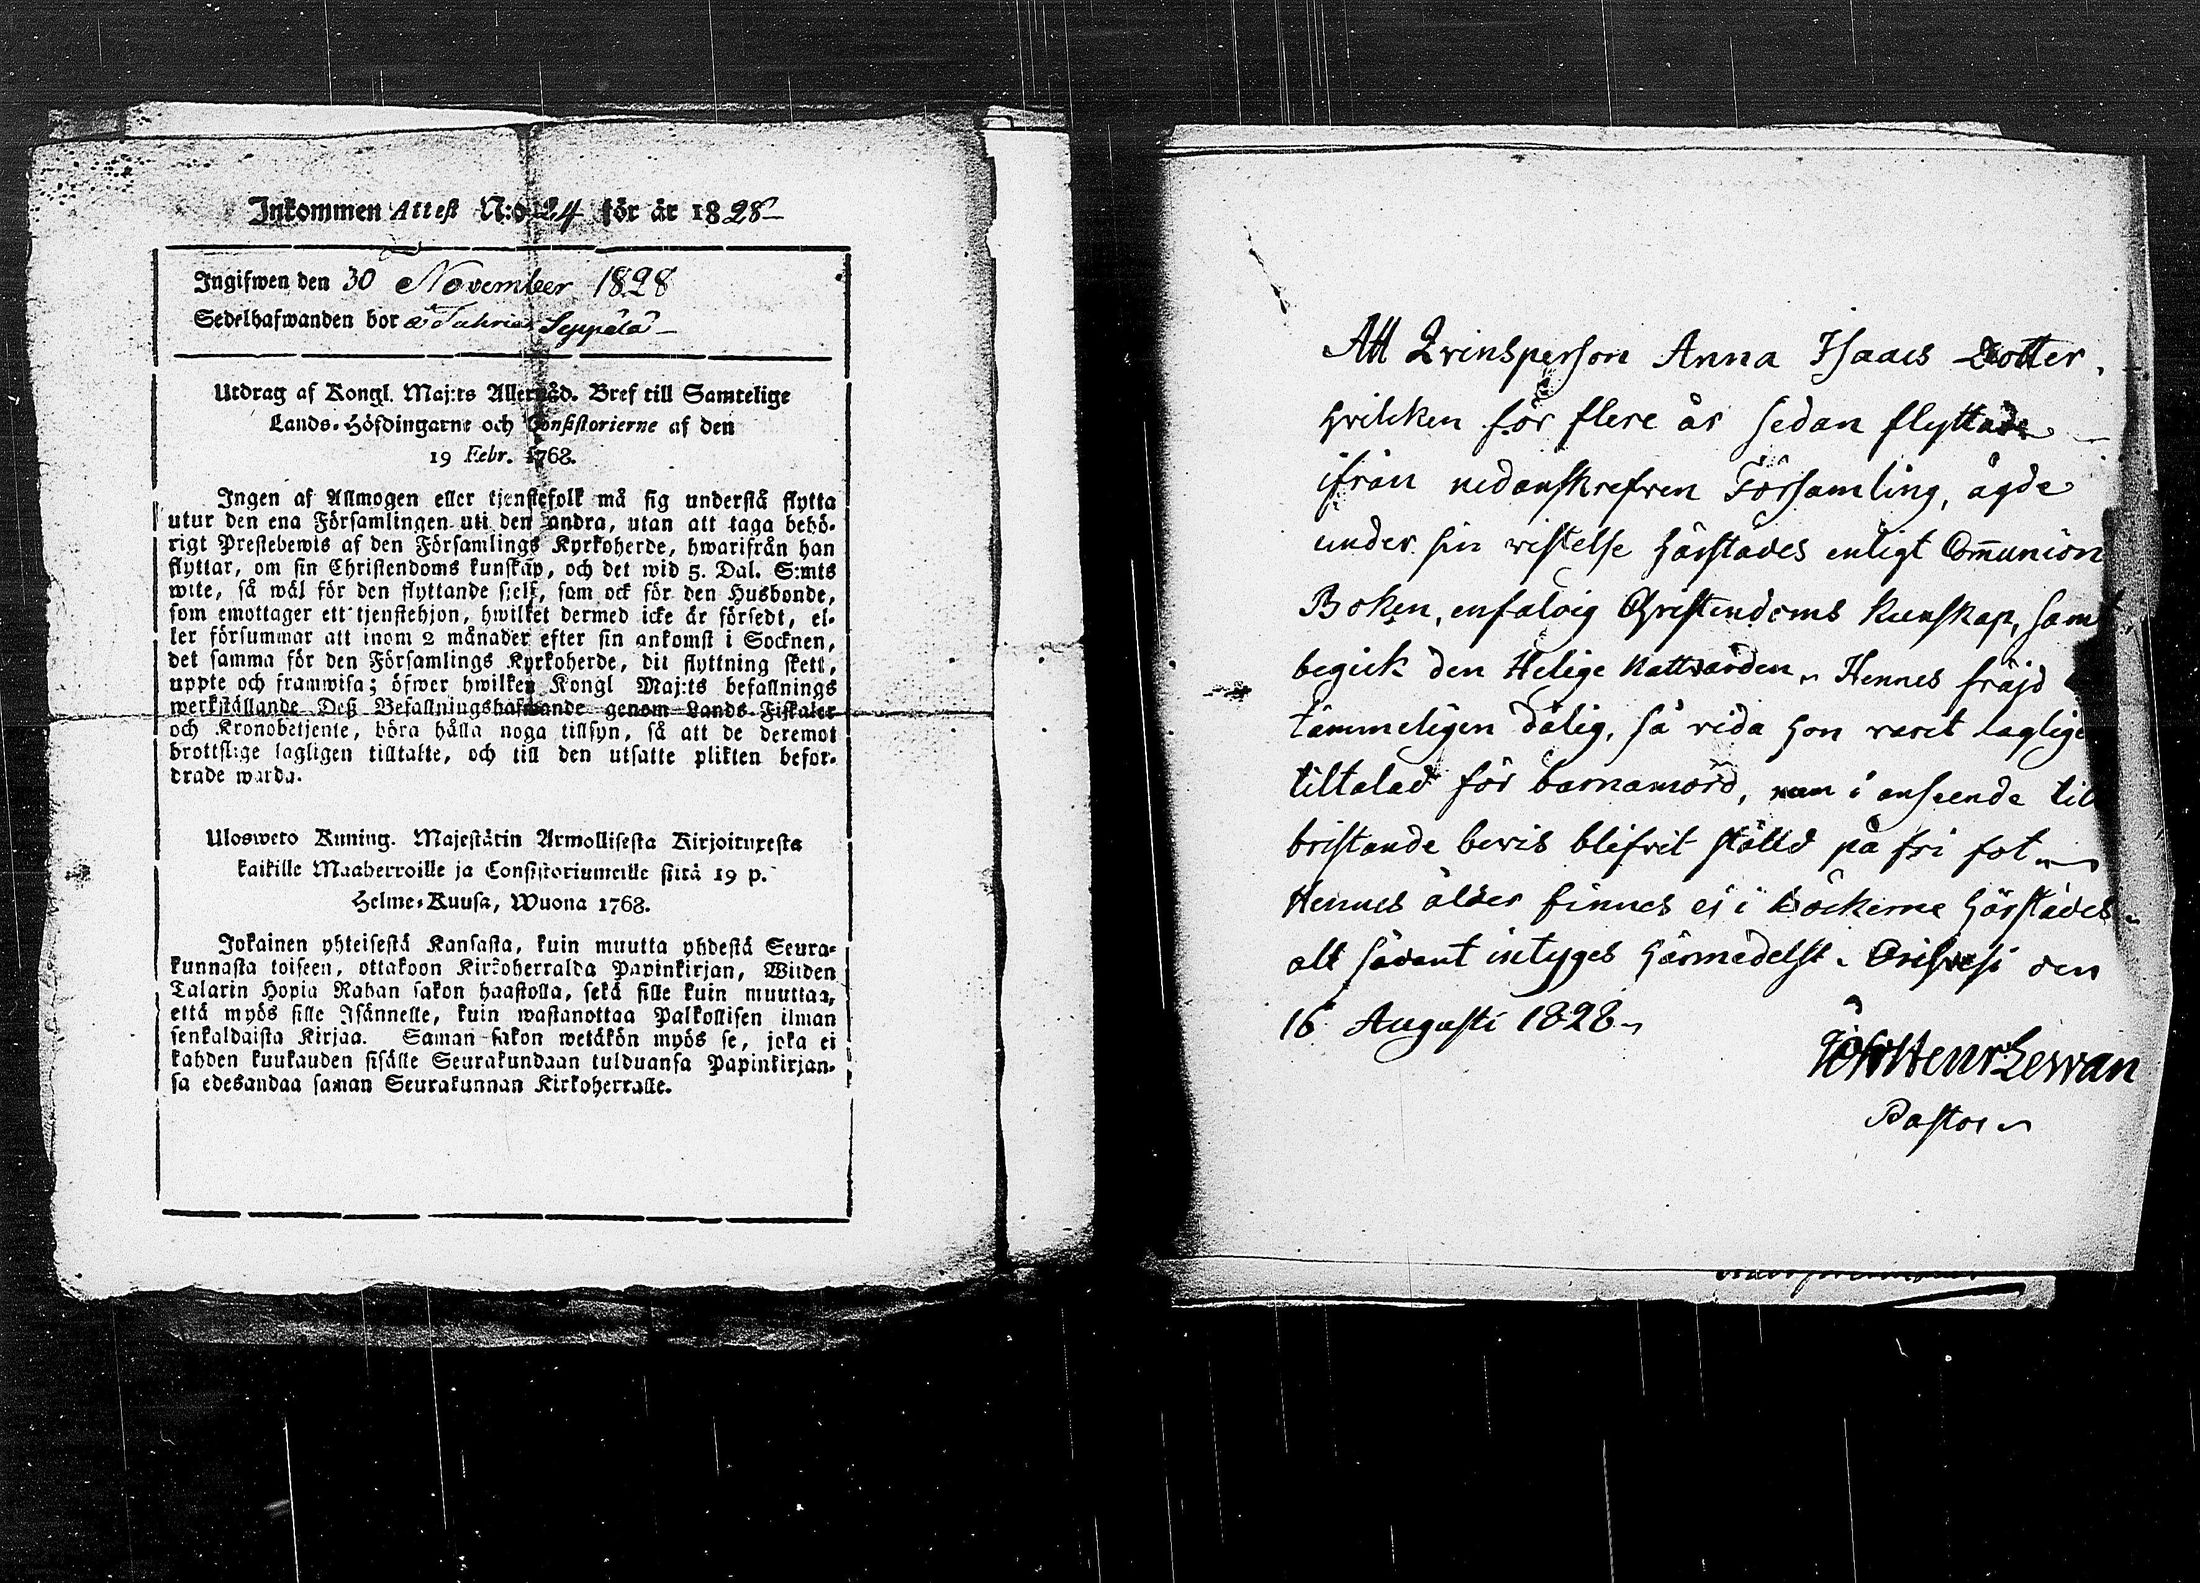 Inkommen Attest N:o 24 för år 1828
Ingifwen den 30 November 1828
Sedelhafwanden bor å Seppälä
Utdrag af Kongl. Maj:ts Allernåd. Bref till Samtelige
Lands-Höfdingarne och Consistorierne af den
19 Febr. 1768.
Ingen af Allmogen eller tjenstefolk må sig understå flytta
utur den ena Församlingen uti den andra, utan att taga behö-
rigt Prestebewis af den Församlings Kyrkoherde, hwarifrån han
flyttar, om sin Christendoms kunskap, och det wid 5. Dal. S:mts
wite, så wäl för den flyttande sjelf, som ock för den Husbonde,
som emottager ett tjenstehjon, hwilket dermed icke är försedt, el-
ler försummar att inom 2 månader efter sin ankomst i Socknen,
det samma för den Församlings Kyrkoherde, dit flyttning skett,
uppte och framwisa; öfwer hwilken Kongl Maj:ts befallnings
werkställande Deß Befallningshafwande genom Lands-Fiskaler
och Kronobetjente, böra hålla noga tillsyn, så att de deremot
brottslige lagligen tilltalte, och till den utsatte plikten befor-
drade warda.
Ulosweto Kuning. Majestätin Armollisesta Kirjoituxesta
kaikille Maaherroille ja Consistoriumeille siitä 19 p.
Helme-Kuusa, Wuona 1768.
Jokainen yhteisestä Kansasta, kuin muutta yhdestä Seura-
kunnasta toiseen, ottakoon Kirkoherralda Papinkirjan, Wiiden
Talarin Hopia Rahan sakon haastolla, sekä sille kuin muuttaa,
että myös sille Isännelle, kuin wastanottaa Palkollisen ilman
senkaldaista Kirjaa. Saman sakon wetäkön myös se, joka ei
kahden kuukauden sisälle Seurakundaan tulduansa Papinkirjan-
sa edesandaa saman Seurakunnan Kirkoherralle.
Att Qvinsperson Anna Isaacs Dotter,
hvilcken för flere år sedan flyttade
ifrån nedanskrefven Församling, ägde
under sin vistelse härstädes enligt Communion
Boken, enfaldig Christendoms kunskap, sam
begick den Helige Nattvarden. Hennes fräjd
tämmeligen dålig, så vida hon varit laglige
tiltalad för barnamord, men i anseende til
bristande bevis blifvit ståld på fri fot
Hennes ålder finnes ej i böckerne härstädes
alt sådant intyges härmedelst. Orisvesi den
16 Augusti 1828
Joh Henr Levvan
Pastor